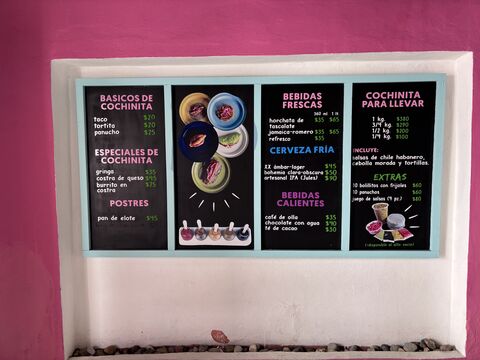 BASICOS DE
COCHINITA
taco $20
tortita $20
panucho $25
ESPECIALES DE
COCHINITA
gringa $35
costra de queso $45
burrito en $75
costra
POSTRES
pan de elote $45
BEBIDAS
FRESCAS
360 ml 1 lt
horchata de $35 $65
tascalate
jamaica-romero $35 $65
refresco $35
CERVEZA FRÍA
XX ámbar-lager $45
bohemia clara-obscura $50
artesanal IPA (Jules) $90
BEBIDAS
CALIENTES
café de olla $35
chocolate con agua $40
té de cacao $30
COCHINITA
PARA LLEVAR
1 kg. $380
3/4 kg. $290
1/2 kg. $200
1/4 kg. $100
INCLUYE:
salsas de chile habanero,
cebolla morada y tortillas.
EXTRAS
10 bolillitos con frijoles $60
10 panuchos $60
juego de salsas (4 pz.) $80